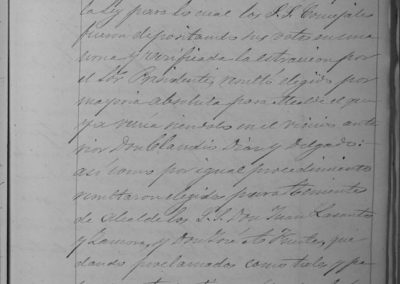 la Ley para lo cual los S.S. Concejales
fueron depositando sus votos en una
urna y verificada la estraccion por
el Sor. Presidente, resultó elegido por
mayoria absoluta para Alcalde el que
ya venia siendolo en el vienio ante
rior Don Claudio Diaz y Delgado:
asi como por igual procedimiento
resultaron elegidos para tenientes
de Alcalde los S.S. Don Juan
y Zamora, y Don José de Fuentes, que
dando proclamados como tales y pa